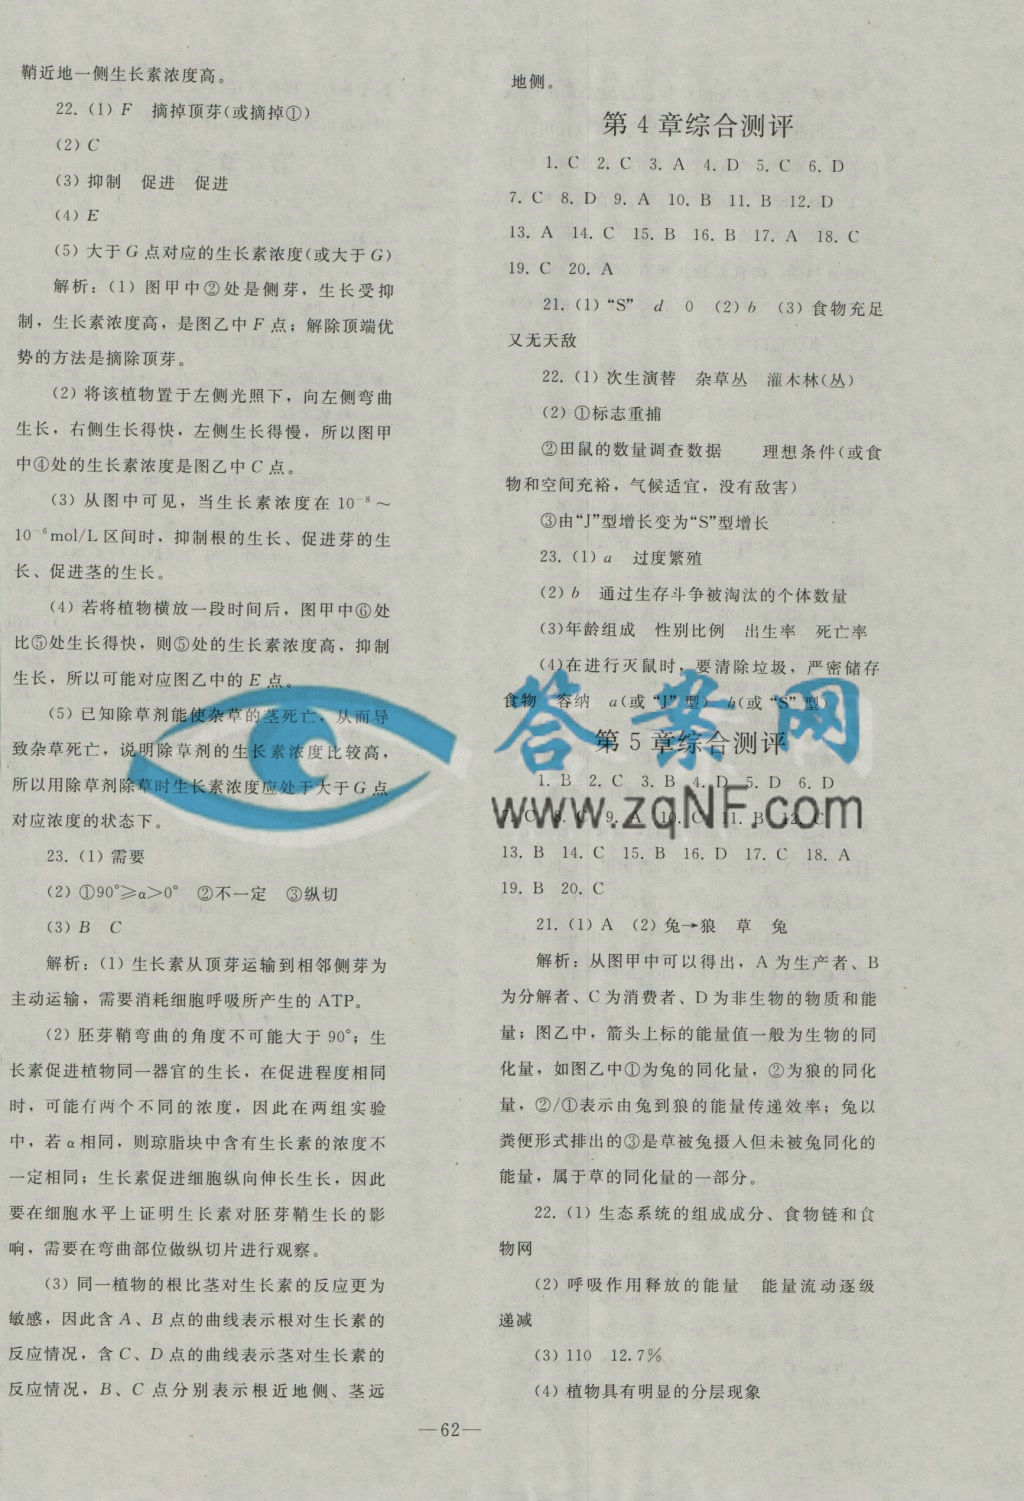 鞘近地一侧生长素浓度高。
22. (1) F 摘掉顶芽(或摘掉①)
(2) C
(3) 抑制 促进 促进
(4) E
(5) 大于 G 点对应的生长素浓度(或大于 G)
解析：(1) 图甲中②处是侧芽，生长受抑
制，生长素浓度高，是图乙中 F 点；解除顶端优
势的方法是摘除顶芽。
(2) 将该植物置于左侧光照下，向左侧弯曲
生长，右侧生长得快，左侧生长得慢，所以图甲
中④处的生长素浓度是图乙中 C 点。
(3) 从图中可见，当生长素浓度在 10⁻⁸～
10⁻⁶ mol/L 区间时，抑制根的生长、促进芽的生
长、促进茎的生长。
(4) 若将植物横放一段时间后，图甲中⑥处
比⑤处生长得快，则⑤处的生长素浓度高，抑制
生长，所以可能对应图乙中的 E 点。
(5) 已知除草剂能使杂草的茎死亡，从而导
致杂草死亡，说明除草剂的生长素浓度比较高，
所以用除草剂除草时生长素浓度应处于大于 G 点
对应浓度的状态下。
23. (1) 需要
(2) ①90°≥α>0° ②不一定 ③纵切
(3) B C
解析：(1) 生长素从顶芽运输到相邻侧芽为
主动运输，需要消耗细胞呼吸所产生的 ATP。
(2) 胚芽鞘弯曲的角度不可能大于 90°；生
长素促进植物同一器官的生长，在促进程度相同
时，可能有两个不同的浓度，因此在两组实验
中，若 α 相同，则琼脂块中含有生长素的浓度不
一定相同；生长素促进细胞纵向伸长生长，因此
要在细胞水平上证明生长素对胚芽鞘生长的影
响，需要在弯曲部位做纵切片进行观察。
(3) 同一植物的根比茎对生长素的反应更为
敏感，因此含 A、B 点的曲线表示根对生长素的
反应情况，含 C、D 点的曲线表示茎对生长素的
反应情况，B、C 点分别表示根近地侧、茎远
地侧。
第 4 章综合测评
1. C 2. C 3. A 4. D 5. C 6. D
7. C 8. D 9. A 10. B 11. B 12. D
13. A 14. C 15. B 16. B 17. A 18. C
19. C 20. A
21. (1) “S” d 0 (2) b (3) 食物充足
又无天敌
22. (1) 次生演替 杂草丛 灌木林(丛)
(2) ①标志重捕
②田鼠的数量调查数据 理想条件(或食
物和空间充裕，气候适宜，没有敌害)
③由“J”型增长变为“S”型增长
23. (1) a 过度繁殖
(2) b 通过生存斗争被淘汰的个体数量
(3)年龄组成 性别比例 出生率 死亡率
(4)在进行灭鼠时，要清除垃圾，严密储存
食物 容纳 a(或 “J” 型) b(或 “S” 型)
第 5 章综合测评
1. B 2. C 3. B 4. D 5. D 6. D
7. C 8. C 9. A 10. C 11. B 12. C
13. B 14. C 15. B 16. D 17. C 18. A
19. B 20. C
21. (1) A (2) 兔→狼 草 兔
解析：从图甲中可以得出，A 为生产者、B
为分解者、C 为消费者、D 为非生物的物质和能
量；图乙中，箭头上标的能量值一般为生物的同
化量，如图乙中①为兔的同化量，②为狼的同化
量，②/①表示由兔到狼的能量传递效率；兔以
粪便形式排出的③是草被兔摄入但未被兔同化的
能量，属于草的同化量的一部分。
22. (1) 生态系统的组成成分、食物链和食
物网
(2) 呼吸作用释放的能量 能量流动逐级
递减
(3) 110 12.7%
(4) 植物具有明显的分层现象
答案网
www.zqNF.com
—62—